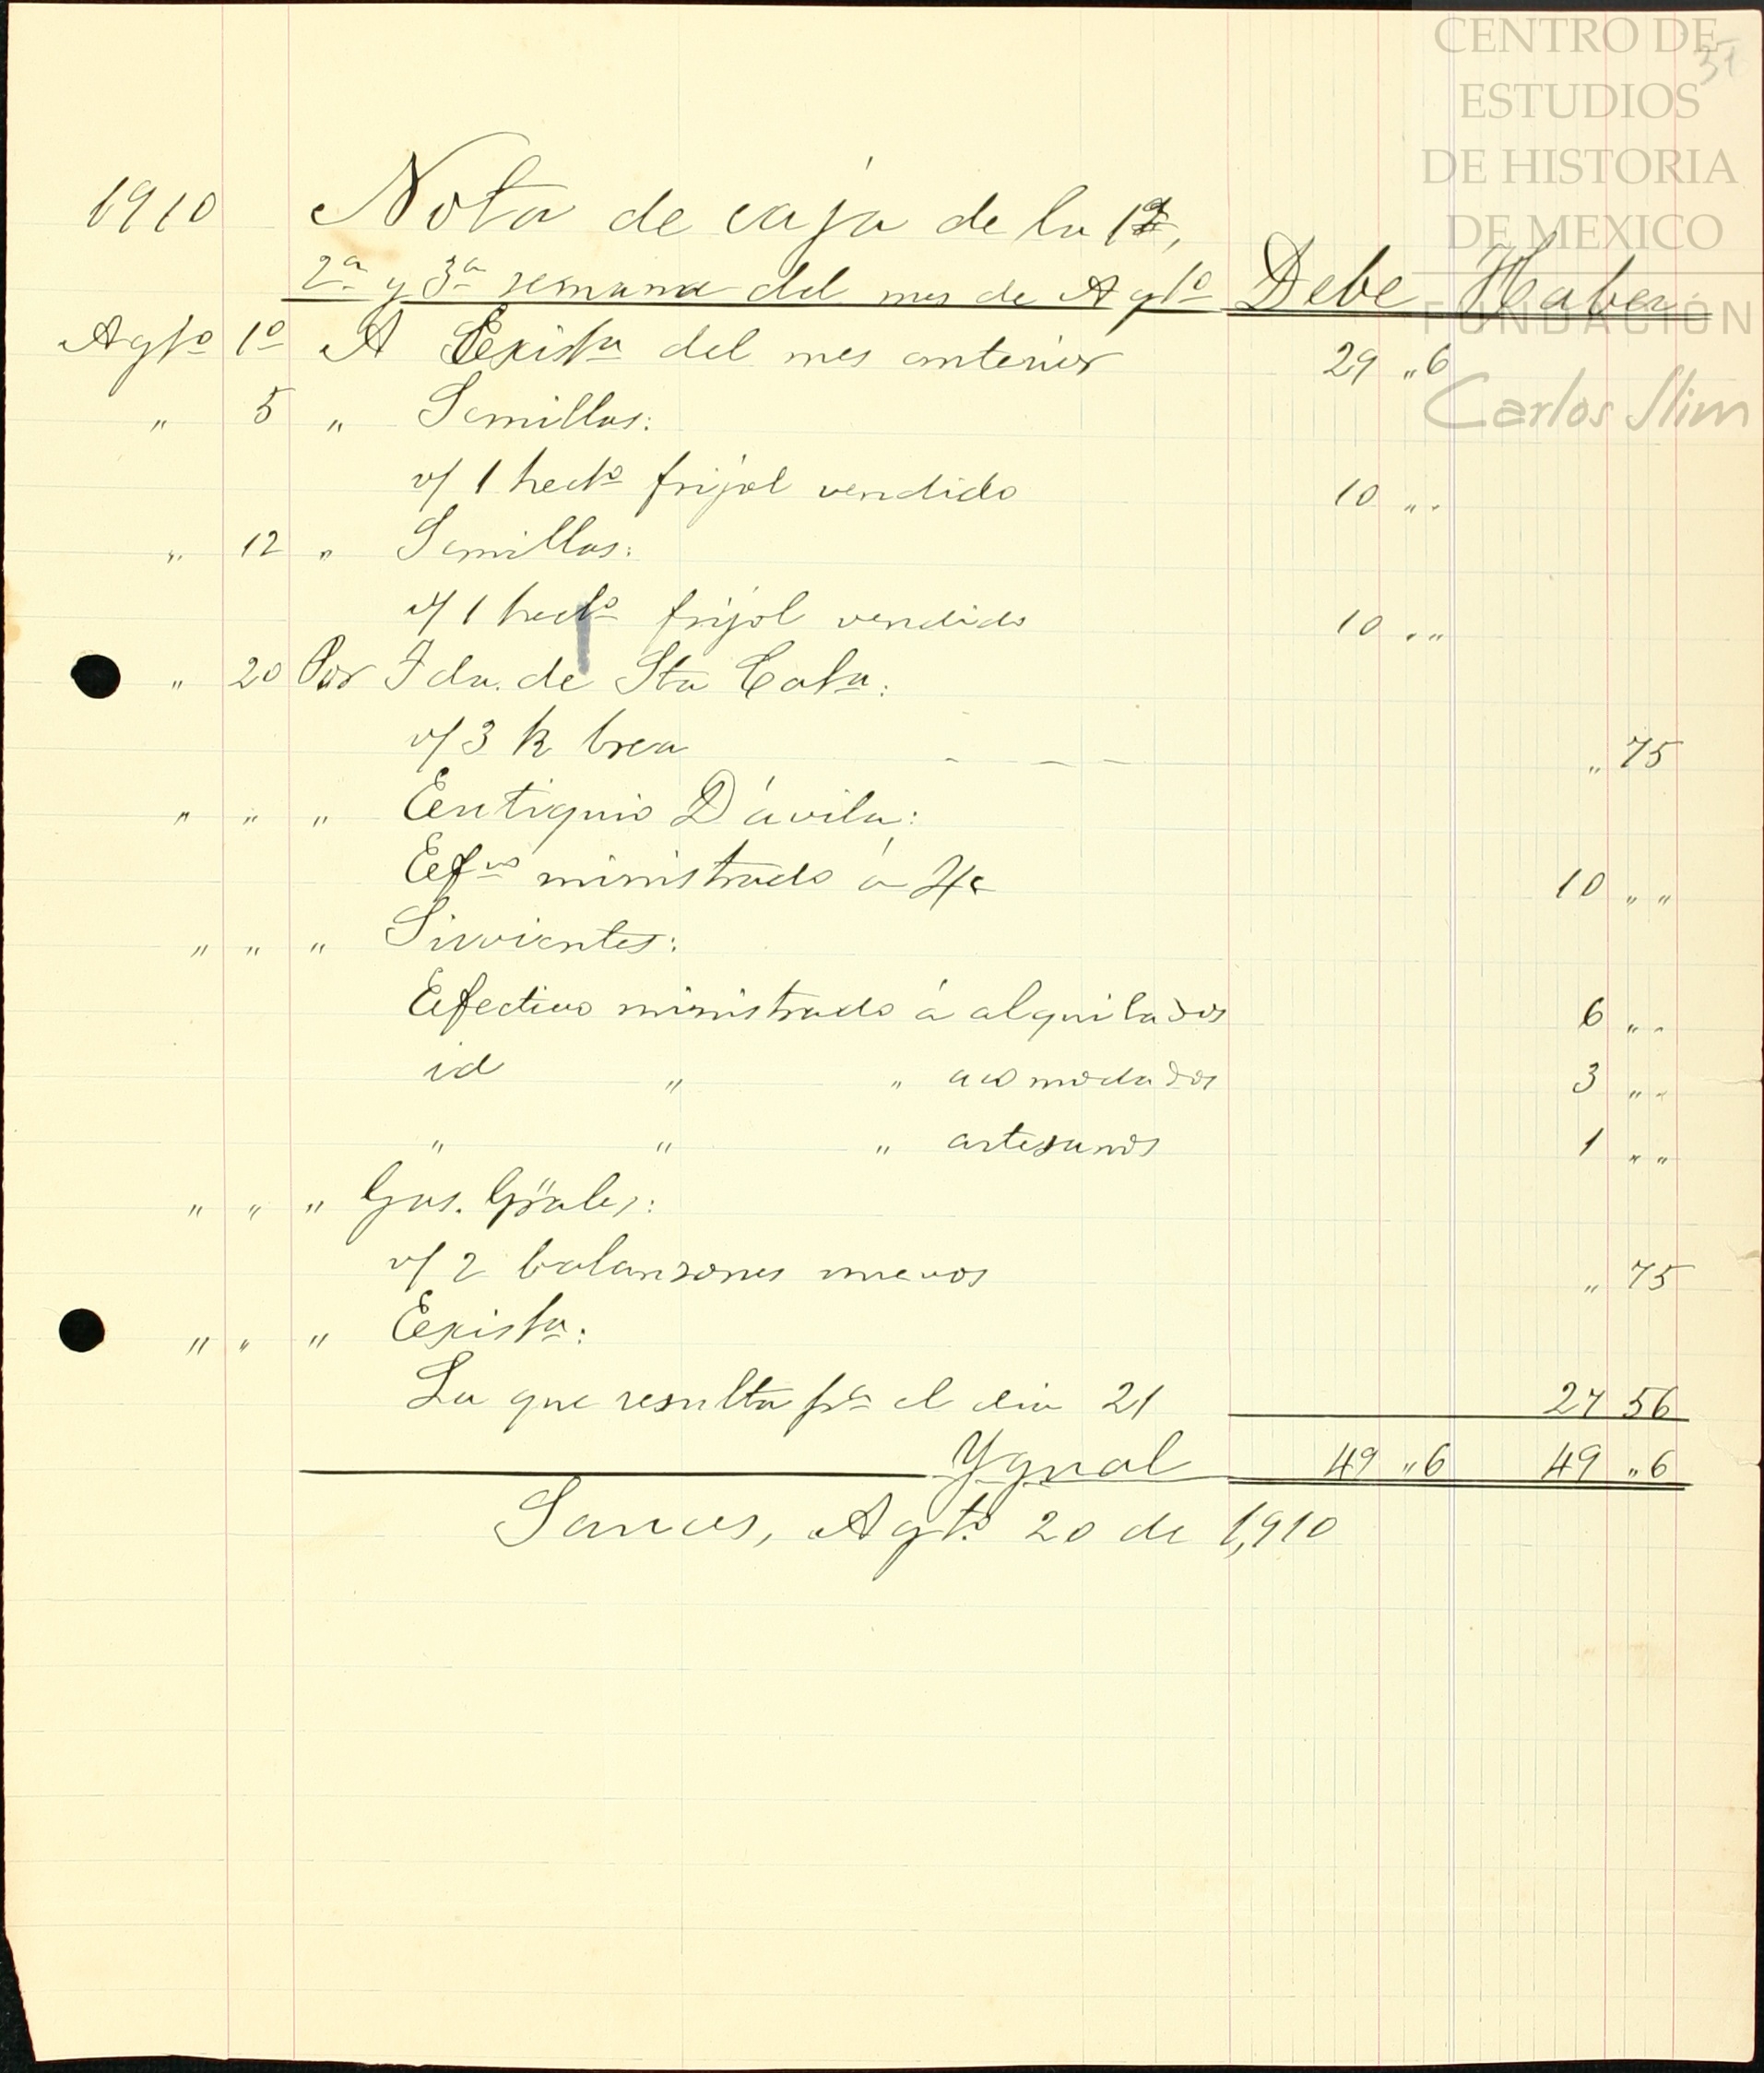 CENTRO DE
ESTUDIOS
DE HISTORIA
DE MEXICO
FUNDACIÓN
Carlos Slim
31
1910 Nota de caja de la 1ª,
2ª y 3ª semana del mes de Agtº Debe Haber
Agtº 1º A Existª del mes anterior 29 „6
„ 5 „ Semillas:
v/ 1 hectº frijol vendido 10 „„
„ 12 „ Semillas:
v/ 1 hectº frijol vendido 10 „„
„ 20 Por Fda. de Sta Catª:
v/ 3 k brea „ 75
„ „ „ Eutiquio Dávila:
Efvº ministrado á %c 10 „„
„ „ „ Sirvientes:
Efectivo ministrado á alquilados 6 „„
id „ „ acomodados 3 „„
„ „ „ artesanos 1 „„
„ „ „ Gas. Gräles:
v/ 2 balanzones nuevos „ 75
„ „ „ Existª:
La que resulta pª el dia 21 27 56
Ygual 49 „6 49 „6
Sauces, Agtº 20 de 1,910